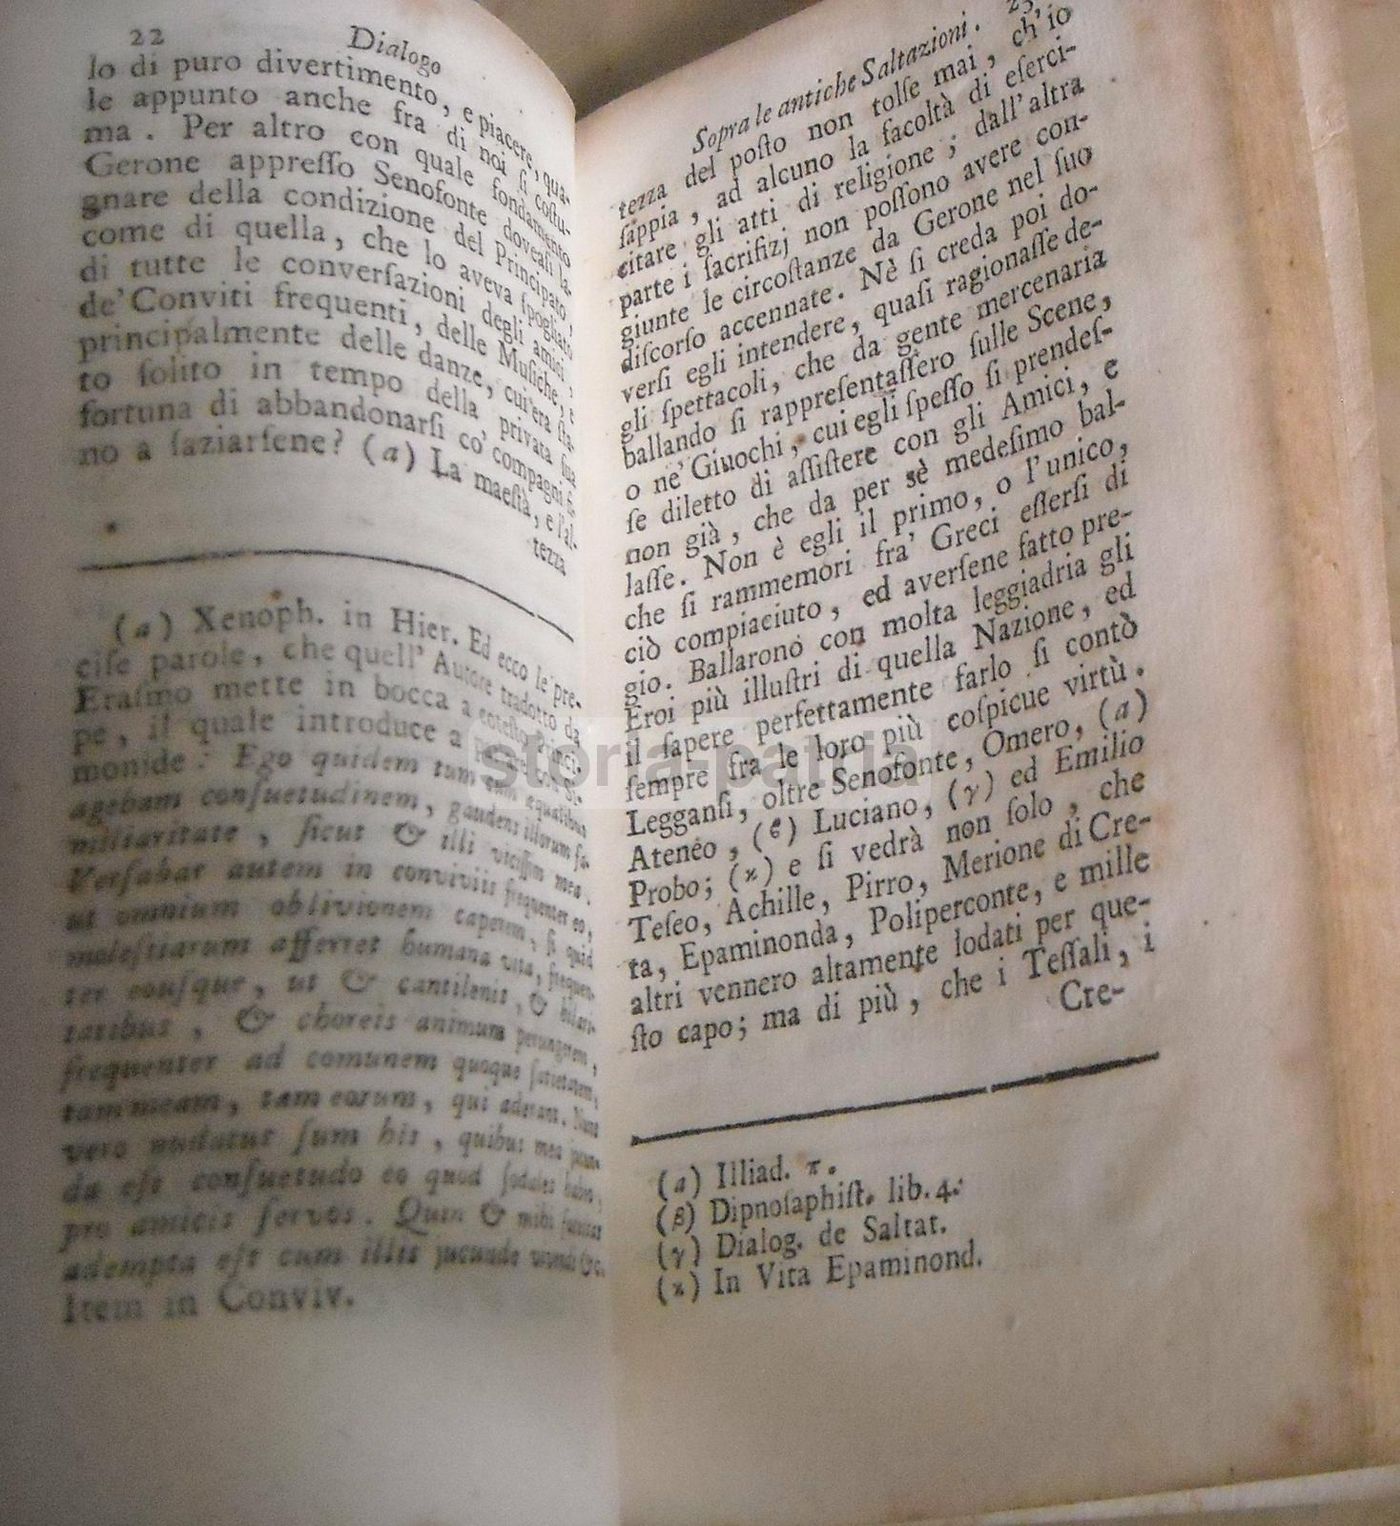 22 Dialogo
lo di puro divertimento, e piacere, qua-
le appunto anche fra di noi ſi coſtu-
ma. Per altro con quale fondamento
Gerone appreſſo Senofonte doveaſi la-
gnare della condizione del Principato,
come di quella, che lo aveva ſpogliato
di tutte le converſazioni degli amici,
de' Conviti frequenti, delle Muſiche, e
principalmente delle danze, cui era ſta-
to ſolito in tempo della privata ſua
fortuna di abbandonarſi co' compagni fi-
no a ſaziarſene? (a) La maeſtà, e l'al-
tezza
(a) Xenoph. in Hier. Ed ecco le pre-
ciſe parole, che quell' Autore tradotto da
Eraſmo mette in bocca a coteſto Princi-
pe, il quale introduce a parlar con Si-
monide: Ego quidem tum cum equalibus
agebam conſuetudinem, gaudens illorum fa-
miliaritate, ſicut & illi viciſſim mea.
Verſabar autem in conviviis frequenter eo,
ut omnium oblivionem caperem, ſi quid
moleſtiarum afferret humana vita, frequen-
ter eouſque, ut & cantilenis, & hilari-
tatibus, & choreis animum perungerem,
frequenter ad comunem quoque ſatietatem,
tam meam, tam eorum, qui aderant. Nunc
vero nudatus ſum his, quibus mea jucun-
da eſt conſuetudo eo quod ſodales habeo,
pro amicis ſervos. Quin & mihi
adempta eſt cum illis jucunde vivendi &c.
Item in Conviv.
Sopra le antiche Saltazioni. 23
tezza del poſto non tolſe mai, ch'io
ſappia, ad alcuno la facoltà di eſerci-
citare gli atti di religione; dall'altra
parte i ſacrifizj non poſſono avere con-
giunte le circoſtanze da Gerone nel ſuo
diſcorſo accennate. Nè ſi creda poi do-
verſi egli intendere, quaſi ragionaſſe de-
gli ſpettacoli, che da gente mercenaria
ballando ſi rappreſentaſſero ſulle Scene,
o ne' Giuochi, cui egli ſpeſſo ſi prendeſ-
ſe diletto di aſſiſtere con gli Amici, e
non già, che da per sè medeſimo bal-
laſſe. Non è egli il primo, o l'unico,
che ſi rammemori fra' Greci eſſerſi di
ciò compiaciuto, ed averſene fatto pre-
gio. Ballarono con molta leggiadria gli
Eroi più illuſtri di quella Nazione, ed
il ſapere perfettamente farlo ſi contò
ſempre fra le loro più coſpicue virtù.
Legganſi, oltre Senofonte, Omero, (a)
Ateneo, (ϐ) Luciano, (γ) ed Emilio
Probo; (ϰ) e ſi vedrà non ſolo, che
Teſeo, Achille, Pirro, Merione di Cre-
ta, Epaminonda, Poliperconte, e mille
altri vennero altamente lodati per que-
ſto capo; ma di più, che i Teſſali, i
Cre-
(a) Illiad. π.
(β) Dipnoſaphiſt. lib. 4.
(γ) Dialog. de Saltat.
(ϰ) In Vita Epaminond.
storia-patria